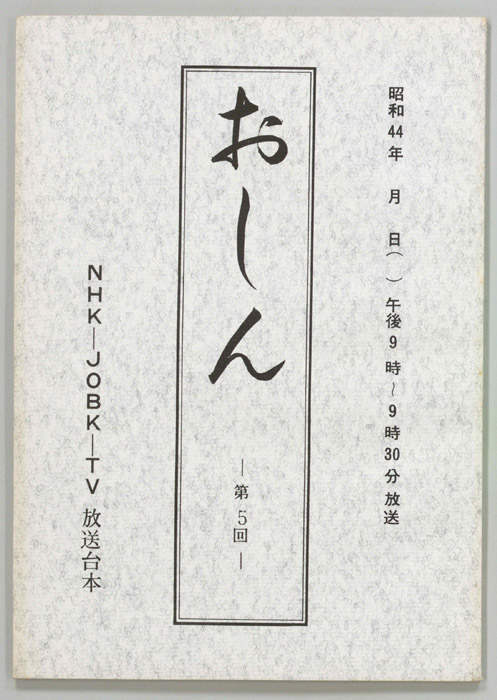 昭和44年　月　日（　）午後9時～9時30分放送
おしん
―第5回―
NHK―JOBK―TV 放送台本